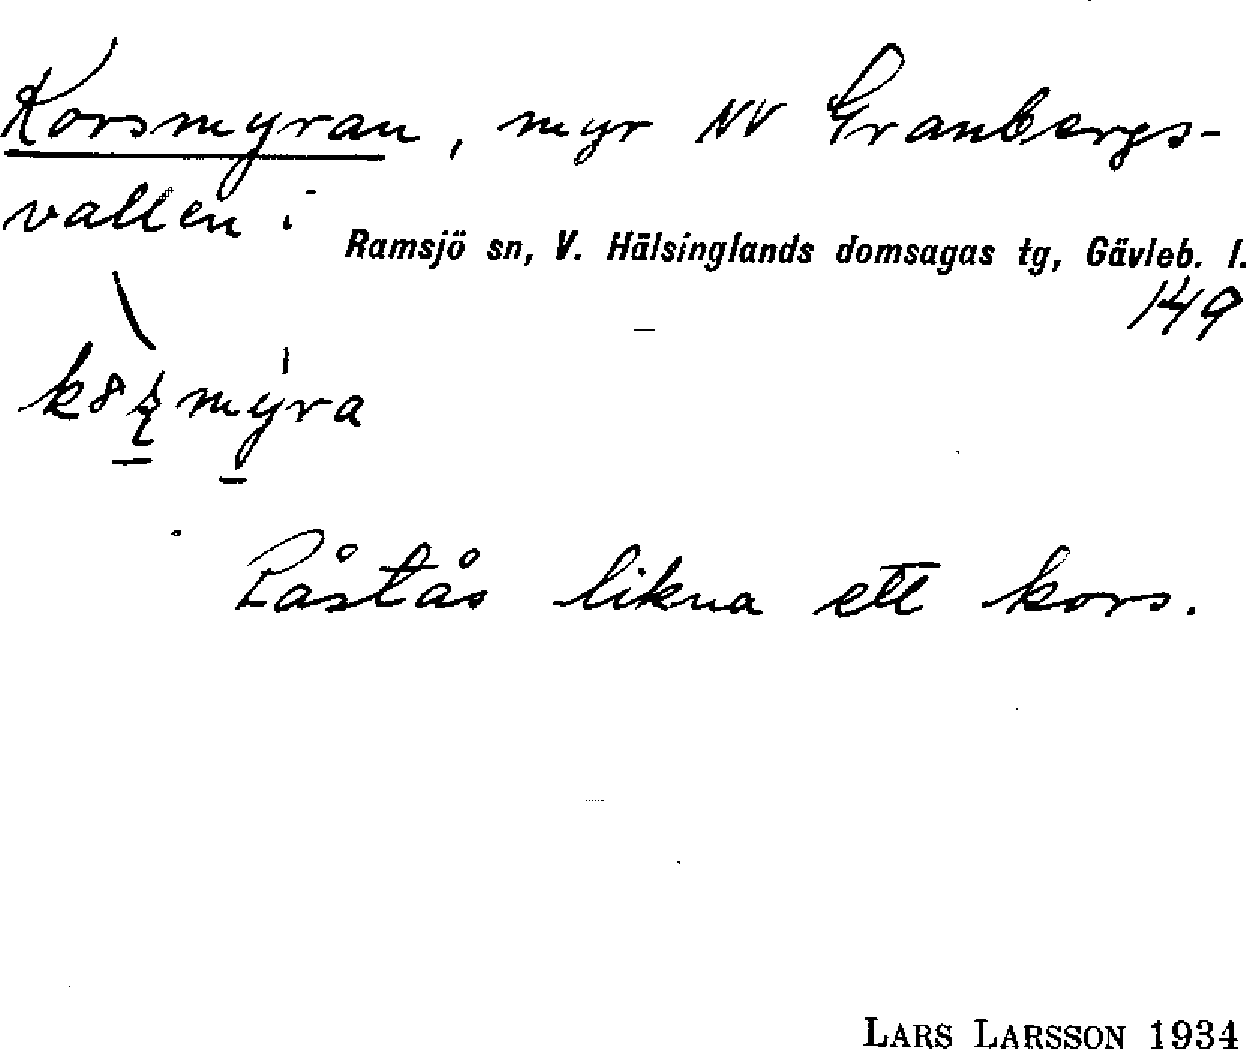 Korsmyran, myr NV Granbergs-
vallen i
Ramsjö sn, V. Hälsinglands domsagas tg, Gävleb. l.
149
Påstås likna ett kors.
LARS LARSSON 1934